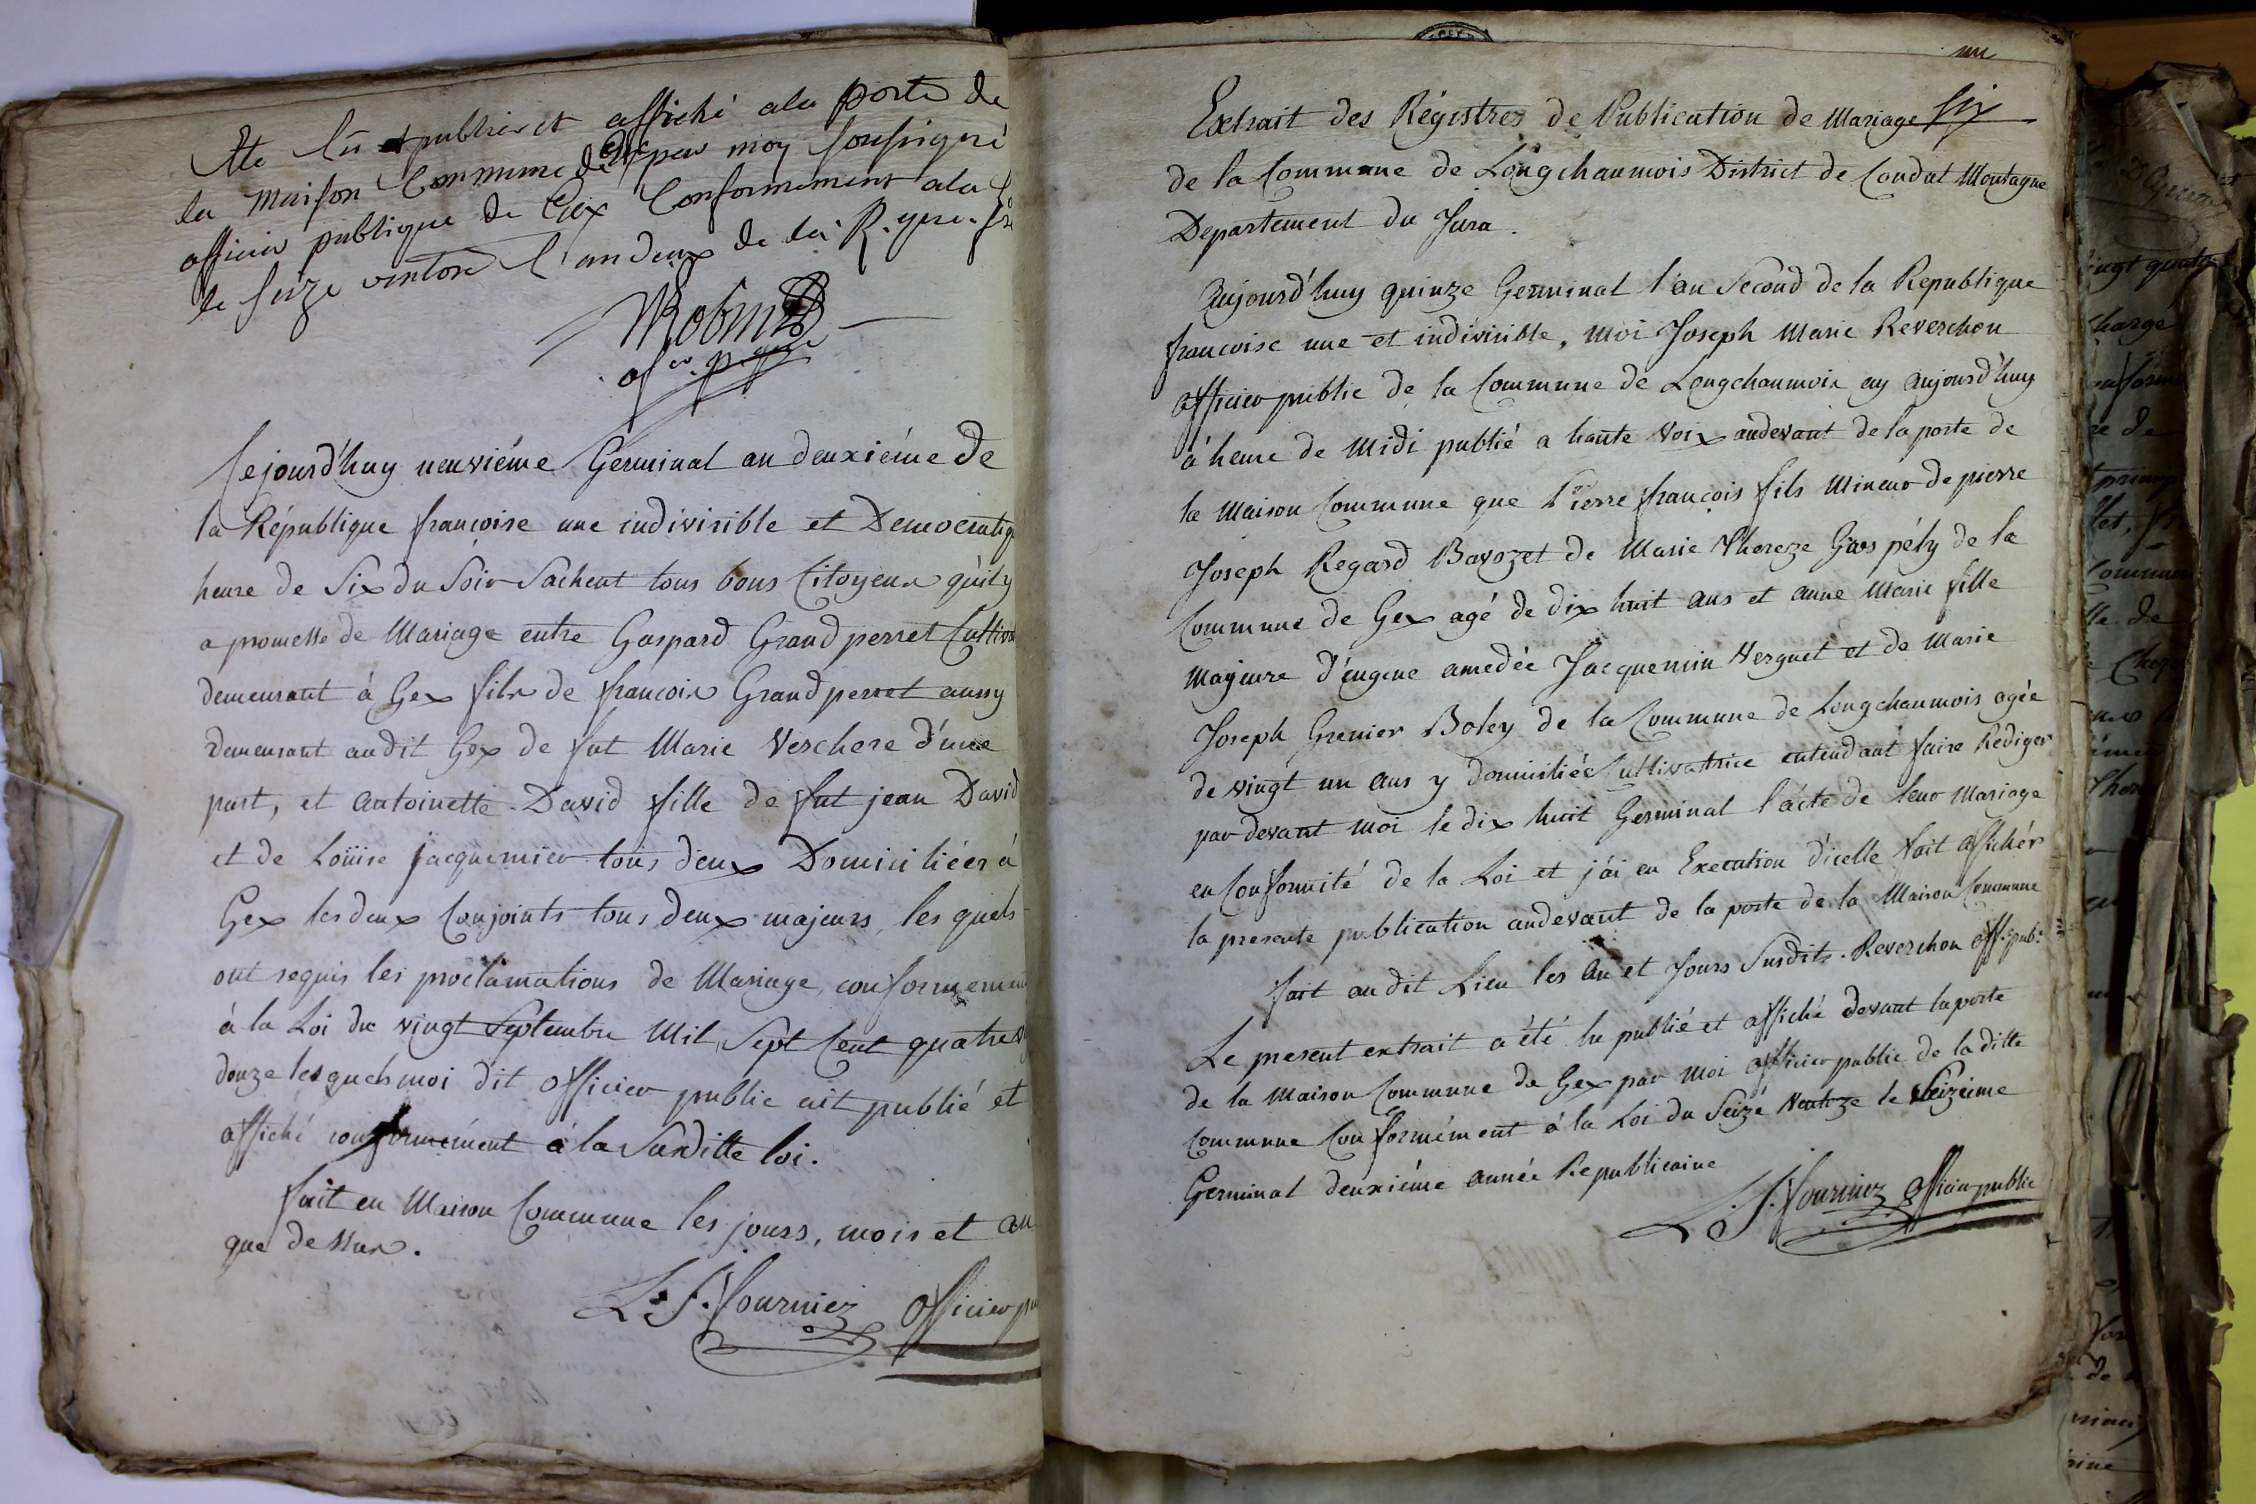 Ete lû et publier et affiché a la porte de
la maison Commune de Gex par moy soussigné
officier publique de Gex Conformement a la
le seize ventose l'an deux de la R.
Robin
Cejourd'huy neuviéme Germinal an deuxiéme de
la République françoise une indivisible et Democratiq
heure de Six du Soir Sachent tous bons Citoyens qu'il y
a promesse de Mariage entre Gaspard Grandperret Cultiva
demeurant à Gex fils de francois Grandperret aussy
demeurant audit Gex de fut Marie Verchere d'une
part, et antoinette David fille de fut jean David
et de Loüise jacquemier tous deux Domiciliées à
Gex les deux Conjoints tous deux majeurs, les quels
ont requis les proclamations de Mariage, conformeme
à la Loi du vingt Septembre Mil Sept Cent quatre v
douze lesquels moi dit officier public ait publié et
affiché conformément à la Susditte loi.
fait en Maison Commune les jours, mois et an
que dessus.
L. F. fournier officier pu
un
six
Extrait des Régistres de Publication de Mariage
de la Commune de Longchaumois District de Condat Montagne
Departement du Jura.
Aujourd'huy quinze Germinal l'an Second de la Republique
francoise une et indivisible, Moi Joseph Marie Reverchon
officier public de la Commune de Longchaumois ay aujourd'huy
à heure de Midi publié a haute Voix audevant de la porte de
la Maison Commune que Pierre françois fils Mineur de pierre
Joseph Regard Bavozet de Marie Thereze Gros pély de la
Commune de Gex agé de dix huit ans et anne Marie fille
Majeure d'éugene amedée Jacquemin Verguet et de Marie
Joseph Grenier Boley de la Commune de Longchaumois agée
de vingt un ans y domiciliée Cultivatrice entendant faire Rediger
par devant moi le dix huit Germinal l'acte de leur Mariage
en Conformité de la Loi et j'ai en Execution d'icelle fait afficher
la presente publication audevant de la porte de la Maison Commune
fait au dit Lieu les An et Jours Susdits. Reverchon off. pub.
Le present extrait a été lu publié et affiché devant la porte
de la Maison Commune de Gex par Moi officier public de la ditte
Commune Conformément à la Loi du Seize Ventoze le Seizieme
Germinal deuxiéme année Republicaine
L. F. fournier officier public